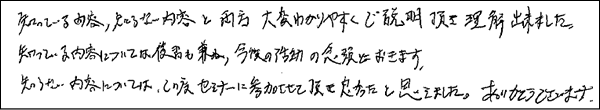 知っている内容,知らない内容と両方 大変わかりやすくご説明 頂き 理解 出来ました。
知っている内容については復習も兼ね,今後の活動の念頭におきます。
知らない内容については,この度セミナーに参加させて頂き良かったと思えました。ありがとうございます。